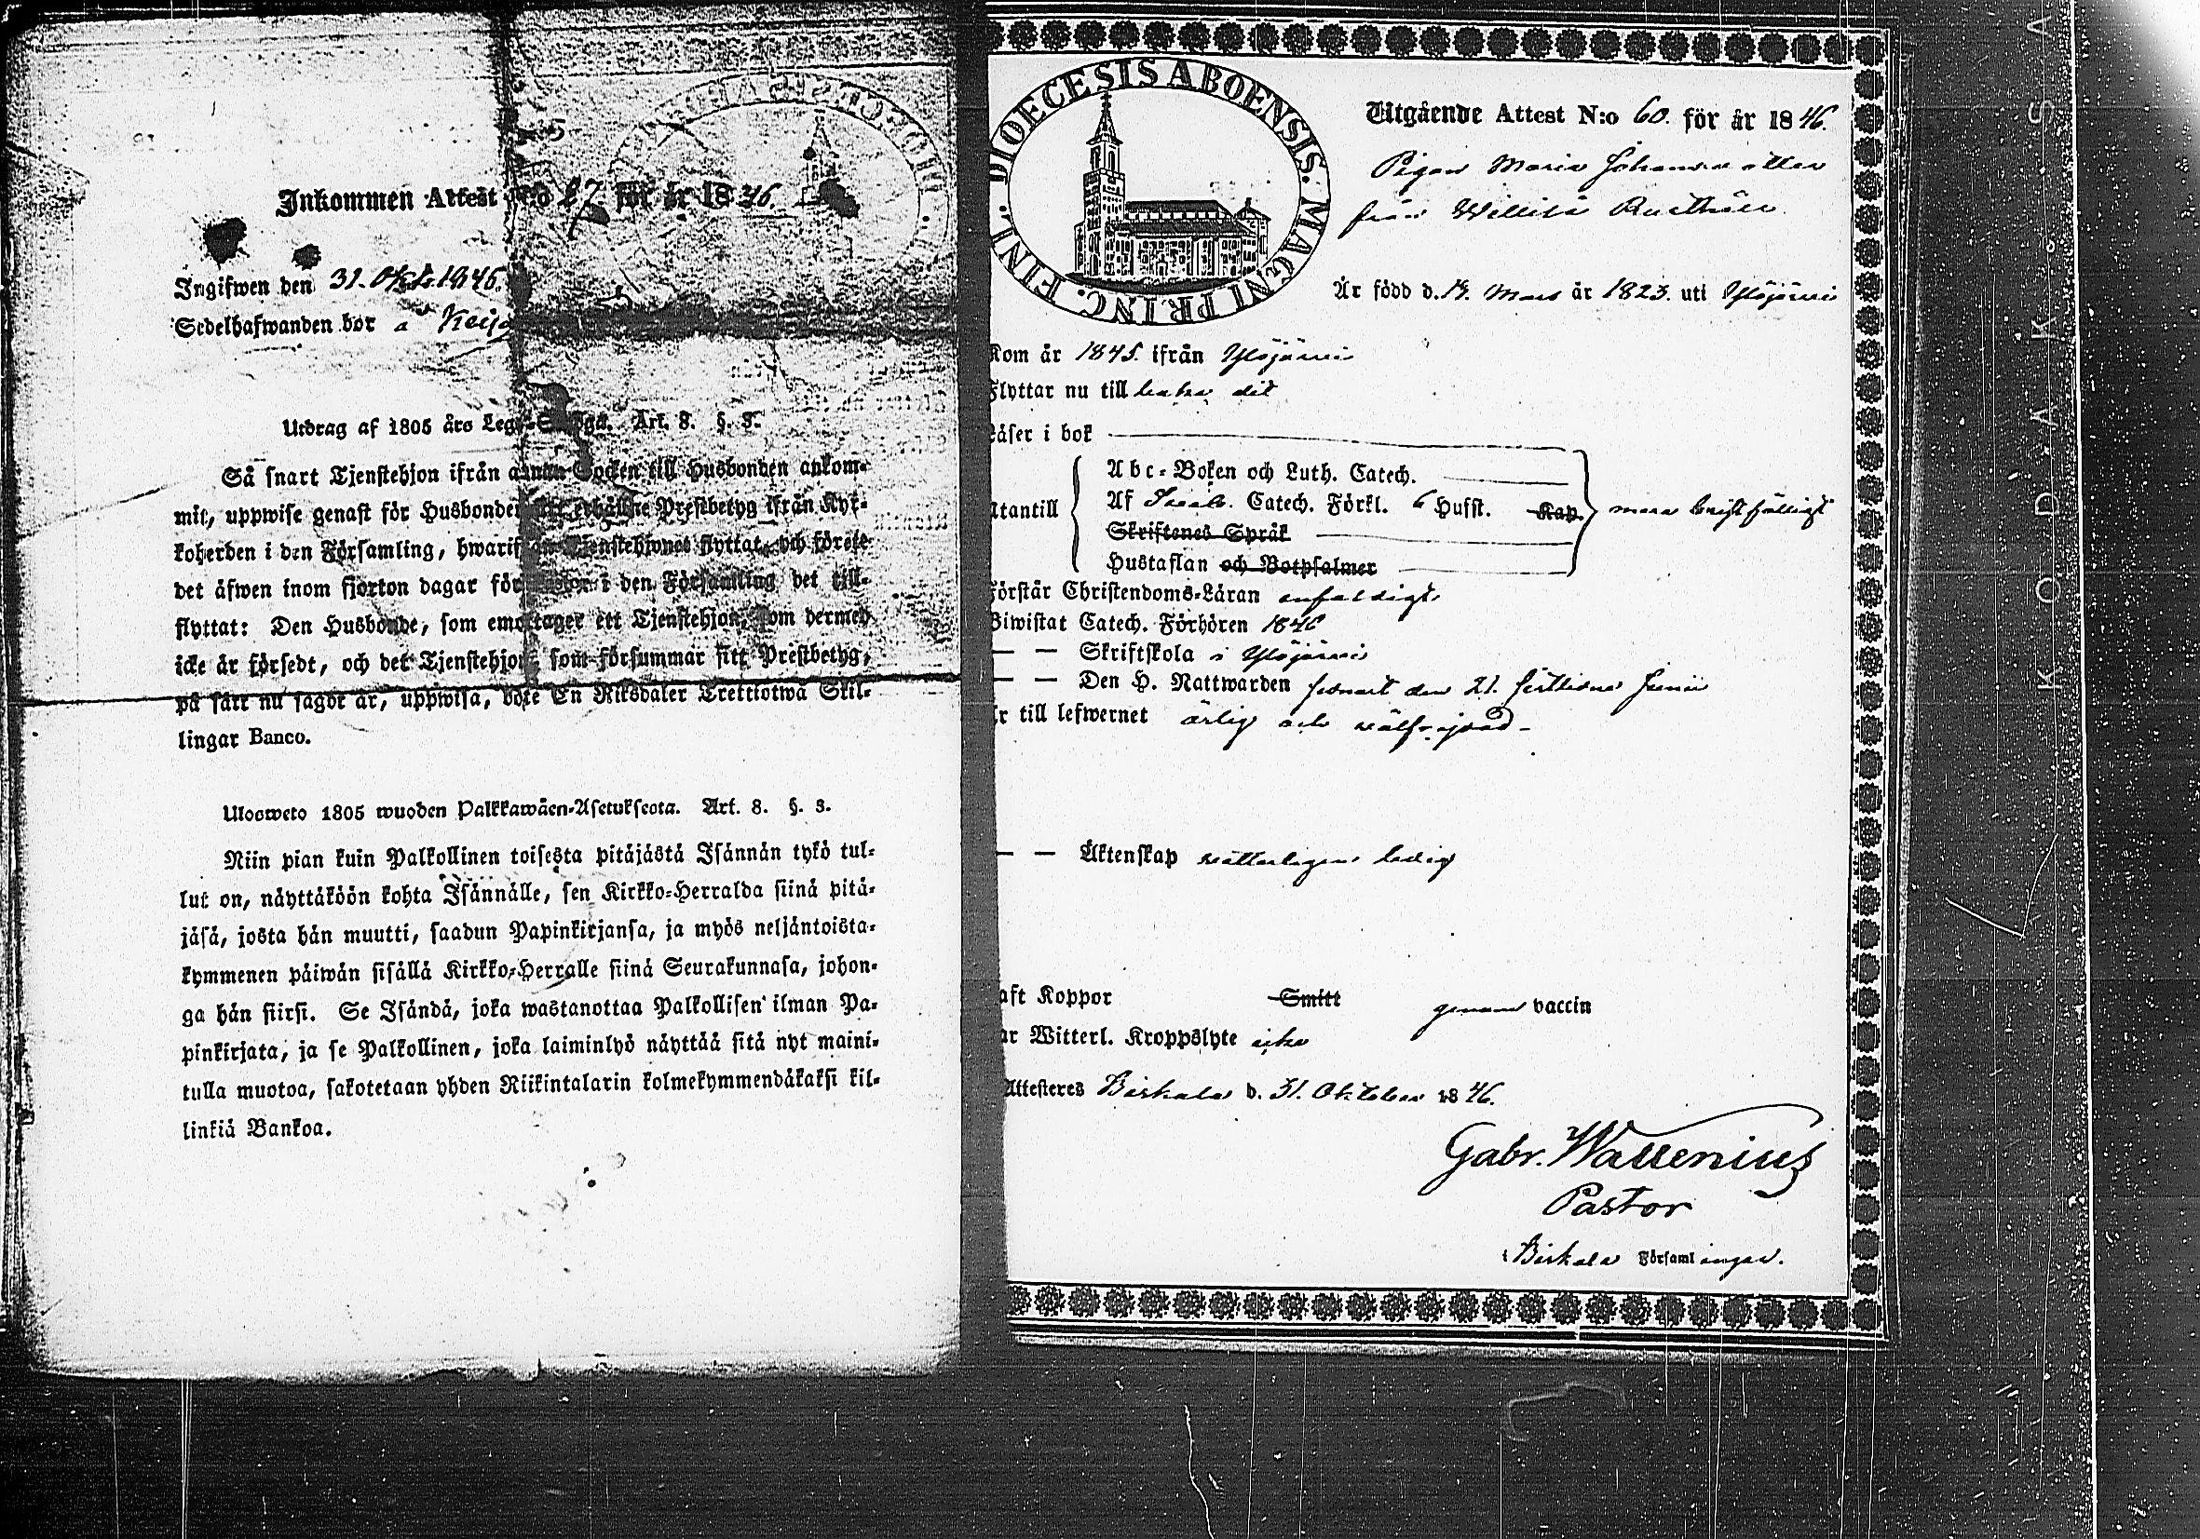 Inkommen Attest N:o 27 för år 1846.
Ingifwen den 31. Okt. 1846.
Sedelhafwanden bor å
Utdrag af 1805 års Lego-Stadga. Art. 8. §. 3.
Så snart Tjenstehjon ifrån annan Socken till Husbonden ankom-
mit, uppwise genast för Husbonden sitt erhållne Prestbetyg ifrån Kyr-
koherden i den Församling, hwarifrån Tjenstehjonet flyttat, och förete
det äfwen inom fjorton dagar för Pastor i den Församling det till-
flyttat: Den Husbonde, som emottager ett Tjenstehjon, som dermed
icke är försedt, och det Tjenstehjon, som försummar sitt Prestbetyg,
på sätt nu sagdt är, uppwisa, böte En Riksdaler Trettiotwå Skil-
lingar Banco.
Ulosweto 1805 wuoden Palkkawäen-Asetuksesta. Art. 8. §. 3.
Niin pian kuin Palkollinen toisesta pitäjästä Isännän tykö tul-
lut on, näyttäköön kohta Isännälle, sen Kirkko-Herralda siinä pitä-
jäsä, josta hän muutti, saadun Papinkirjansa, ja myös neljäntoista-
kymmenen päiwän sisällä Kirkko-Herralle siinä Seurakunnasa, johon-
ga hän siirsi. Se Isändä, joka wastanottaa Palkollisen ilman Pa-
pinkirjata, ja se Palkollinen, joka laiminlyö näyttää sitä nyt maini-
tulla muotoa, sakotetaan yhden Riikintalarin kolmekymmendäkaksi kil-
linkiä Bankoa.
DIOECESIS ABOENSIS. MAGNI PRINC. FINL.
Utgående Attest N:o 60. för år 1846.
Pigan Maria Johansdotter
från Willilä Rusthåll
Är född d. 14. Mars år 1823. uti Ylöjärvi
Kom år 1845. ifrån Ylöjärvi
Flyttar nu till baka dit
Läser i bok
Utantill
Abc-Boken och Luth. Catech.
Af Sveb. Catech. Förkl. 6 Hufst. Kap.
mera bristfälligt
Skriftenes Språk
Hustaflan och Botpsalmer
Förstår Christendoms-Läran enfaldigt
Biwistat Catech. Förhören 1846
— — Skriftskola i Ylöjärvi
— — Den H. Nattwarden senast den 21. sistlidne Junii
Är till lefwernet ärlig och välfrejdad
— — Äktenskap ledig
aft Koppor Smitt genom vaccin
ar Witterl. Kroppslyte icke
Attesteres Birkala d. 31. Oktober 1846.
Gabr. Wallenius
Pastor
i Birkala Församlingar.
KODAK SA